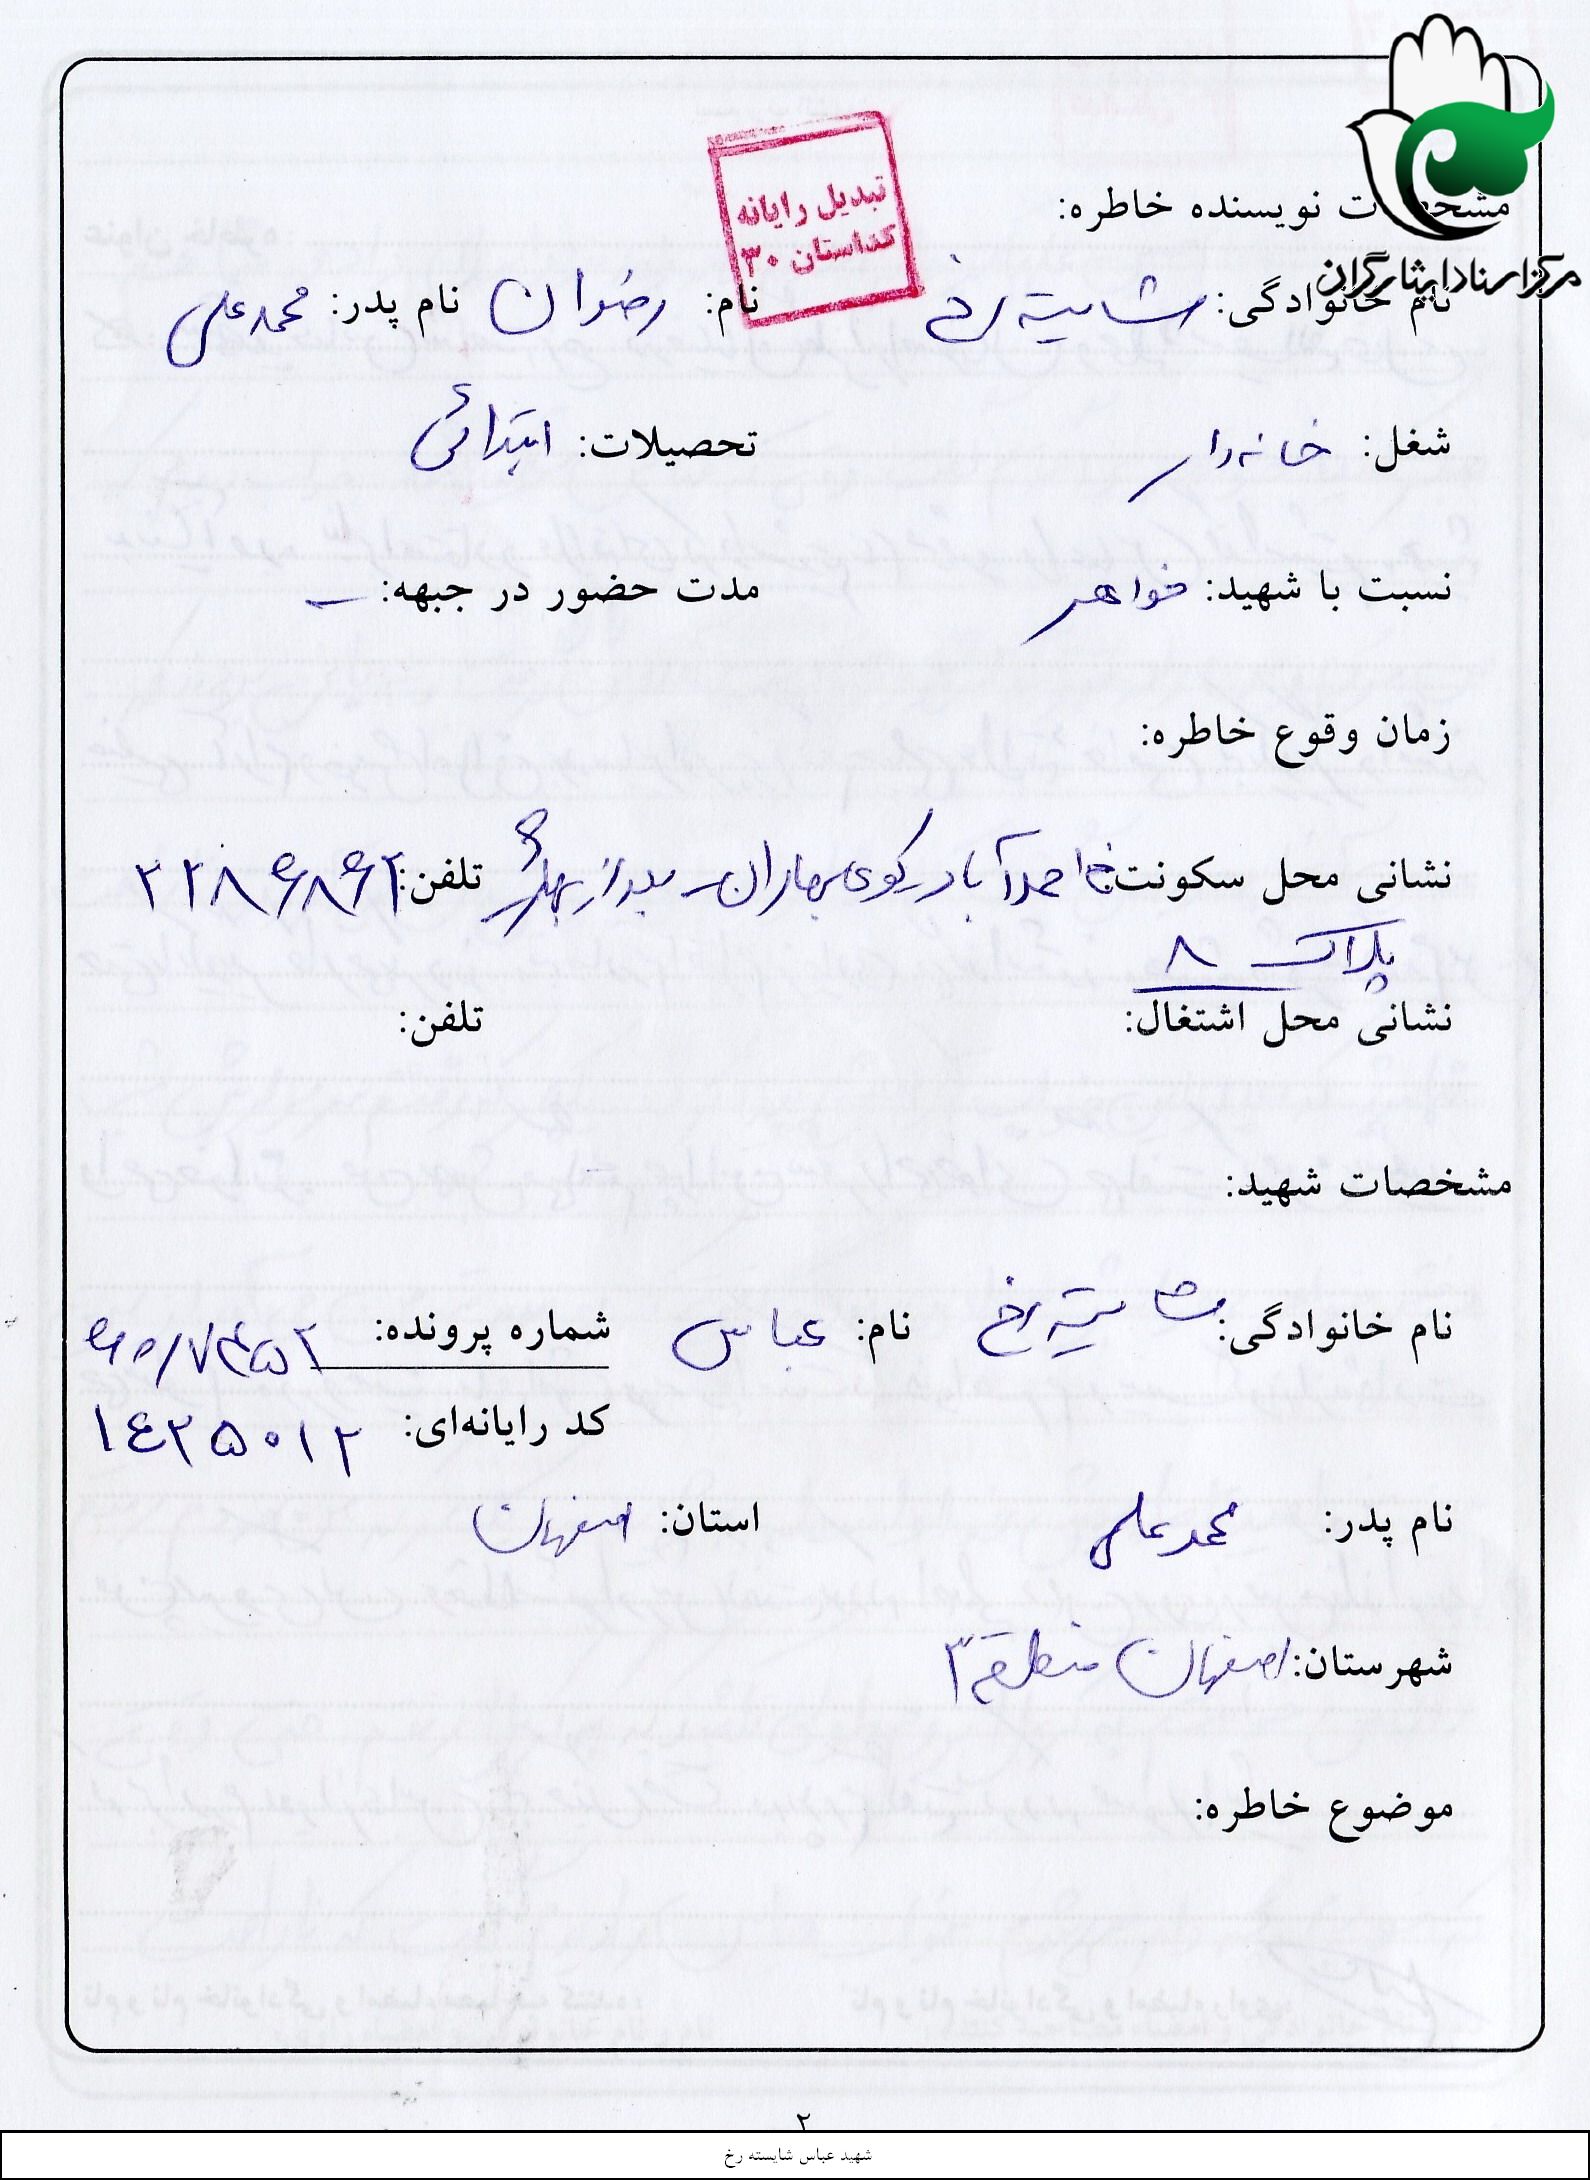 مرکز اسناد ایثارگران
تبدیل رایانه
کد استان ۳۰
مشخصات نویسنده خاطره:
نام خانوادگی: شایسته رخ نام: رضوان نام پدر: محمدعلی
شغل: خانه دار تحصیلات: ابتدائی
نسبت با شهید: خواهر مدت حضور در جبهه: –
زمان وقوع خاطره:
نشانی محل سکونت: خ احمدآباد - کوی بهاران - تلفن: ۲۲۸۶۸۶۲
پلاک ۸
نشانی محل اشتغال: تلفن:
مشخصات شهید:
نام خانوادگی: شایسته رخ نام: عباس شماره پرونده: ۶۰/۷۴۵۲
کد رایانه‌ای: ۱۴۲۵۰۱۲
نام پدر: محمدعلی استان: اصفهان
شهرستان: اصفهان منطقه ۳
موضوع خاطره:
۲
شهید عباس شایسته رخ